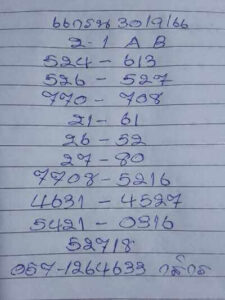 30/9/66
2-1 A B
524 - 613
526 - 527
770 - 708
21 - 61
26 - 52
27 - 80
7708 - 5216
4631 - 4527
5421 - 0316
52718
057-1264633